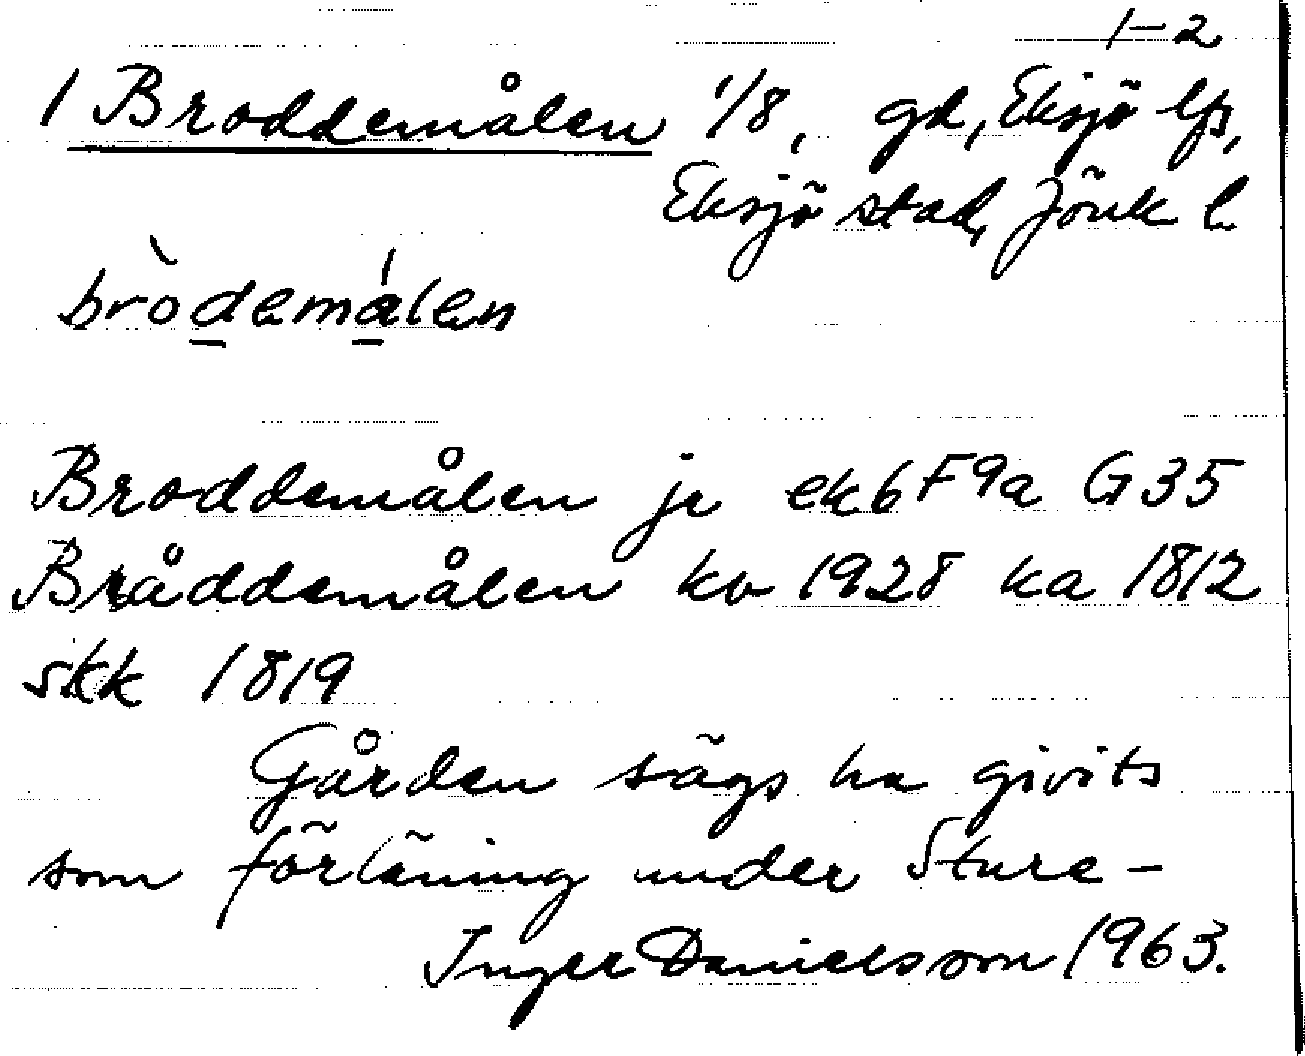 1-2
1 Broddemålen 1/8, gd, Eksjö lfs,
Eksjö stad, Jönk l.
bròdemálen
Broddemålen jr ekb F9a G35
Bråddemålen kv 1928 ka 1812
skk 1819
Gården sägs ha givits
som förläning under Sture-
Inger Danielsson 1963.